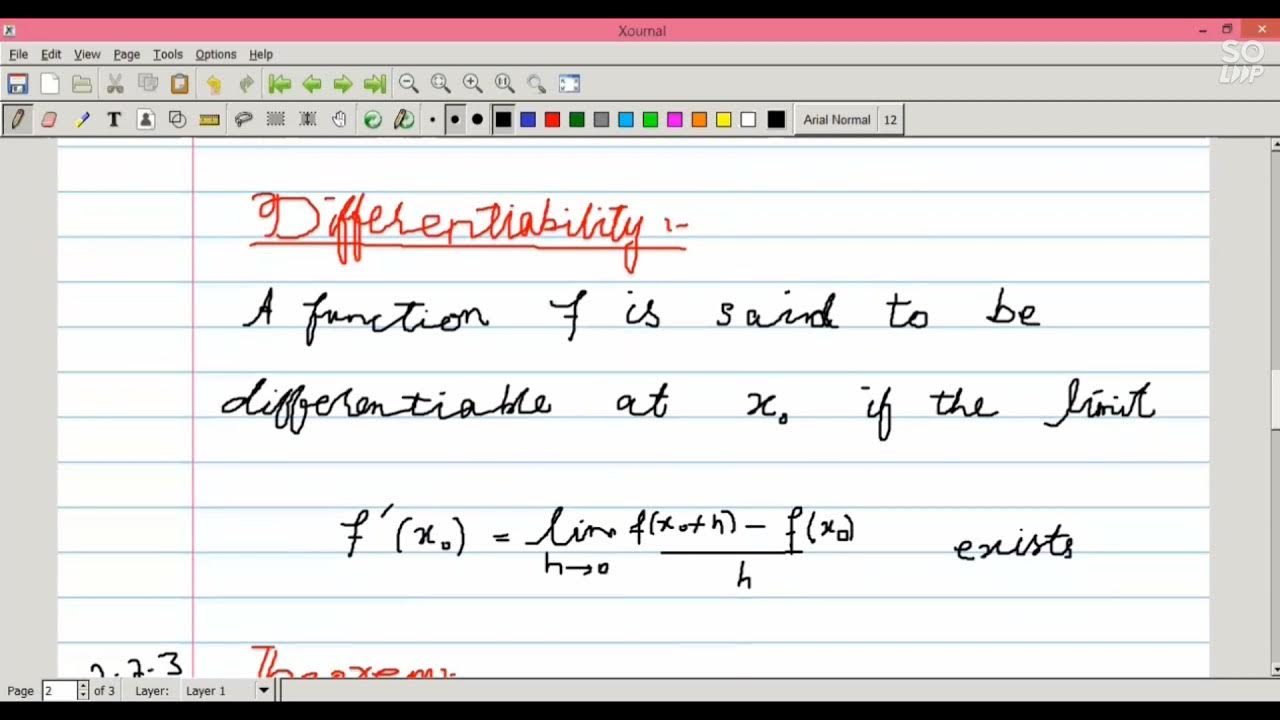 Xournal
SO
LOOP
File Edit View Page Tools Options Help
Arial Normal 12
Differentiability :-
A function f is said to be
differentiable at x₀ if the limit
f′(x₀) = lim h→0 f(x₀+h) – f(x₀) / h exists
2.2.3 Theorem:-
Page 2 of 3 Layer: Layer 1